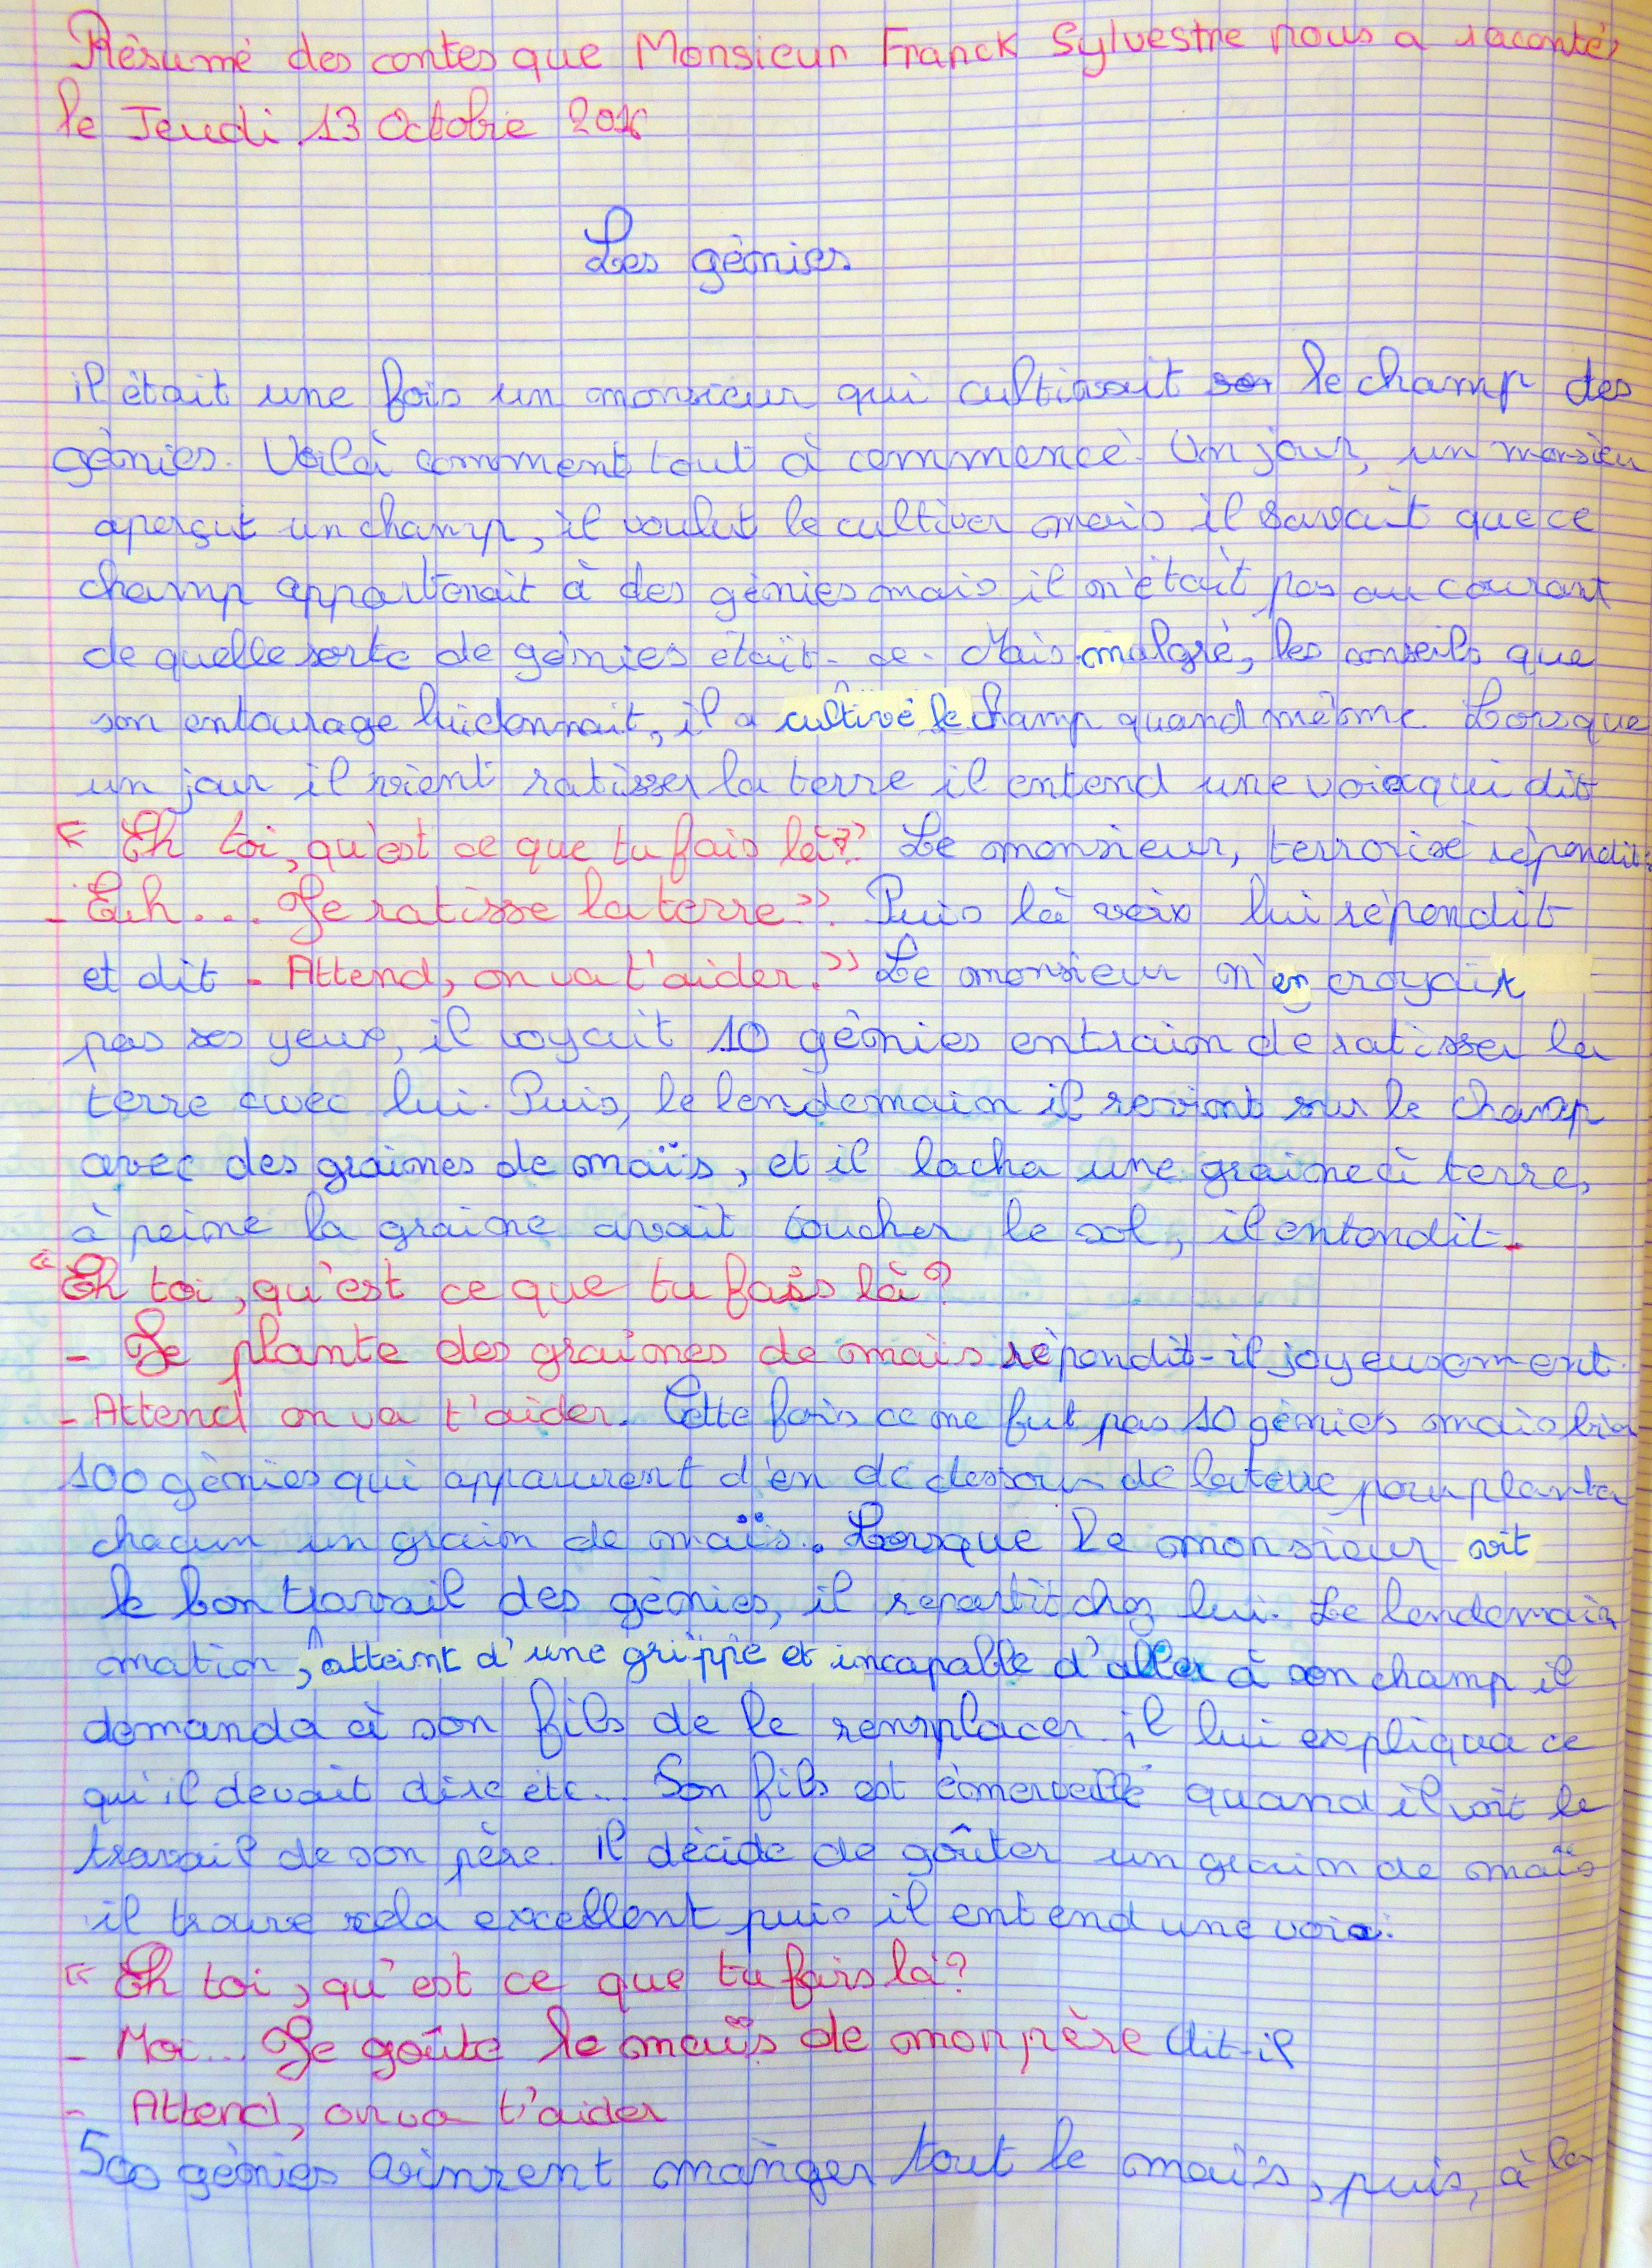 Résumé des contes que Monsieur Franck Sylvestre nous a racontés
le Jeudi 13 Octobre 2016
Les génies
il était une fois un monsieur qui cultivait le champ des
génies. Voilà comment tout à commencé. Un jour, un monsieu
aperçut un champ, il voulut le cultiver mais il savait que ce
champ appartenait à des génies mais il n'était pas au courant
de quelle sorte de génies était-ce. Mais malgré, les conseils que
son entourage lui donnait, il a cultivé le champ quand même. Lorsque
un jour il vient ratisser la terre il entend une voix qui dit
« Eh toi, qu'est ce que tu fais là?" Le monsieur, terrorisé répondit:
- Euh... Je ratisse la terre". Puis la voix lui répondit
et dit - Attend, on va t'aider." Le monsieur n'en croyait
pas ses yeux, il voyait 10 génies entraion de ratisser la
terre avec lui. Puis, le lendemain il revint sur le champ
avec des graines de maïs, et il lacha une graine à terre,
à peine la graine avait toucher le sol, il entendit-
"Eh toi, qu'est ce que tu fais là?
- Je plante des graines de maïs répondit-il joyeusement.
- Attend on va t'aider. Cette fois ce ne fut pas 10 génies mais bien
100 génies qui apparurent d'en de dessous de la terre pour planter
chacun un grain de maïs. Lorsque le monsieur vit
le bon travail des génies, il repartit chez lui. Le lendemain
matin, atteint d'une grippe et incapable d'aller à son champ il
demanda à son fils de le remplacer il lui expliqua ce
qu'il devait dire etc... Son fils est émerveillé quand il voit le
travail de son père. Il décide de goûter un grain de maïs
il trouve cela excellent puis il entend une voix.
« Eh toi, qu'est ce que tu fais là?
- Moi... Je goûte le maïs de mon père dit-il
- Attend, on va t'aider
500 génies vinrent manger tout le maïs, puis, à la